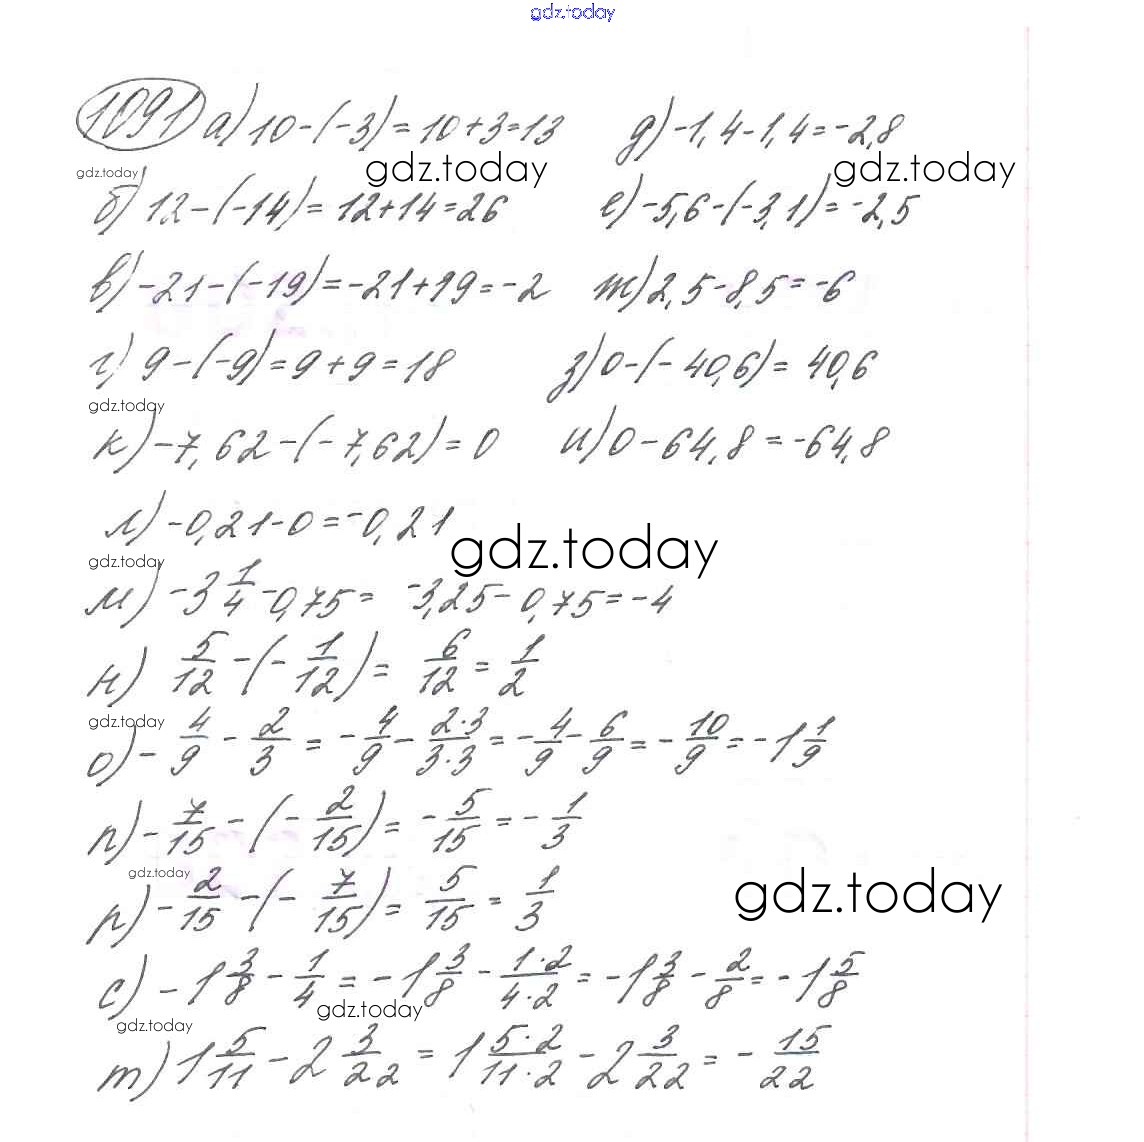 gdz.today
1091 а) 10-(-3)=10+3=13 д) -1,4-1,4=-2,8
gdz.today gdz.today gdz.today
б) 12-(-14)=12+14=26 е) -5,6-(-3,1)=-2,5
в) -21-(-19)=-21+19=-2 ж) 2,5-8,5=-6
г) 9-(-9)=9+9=18 з) 0-(-40,6)=40,6
gdz.today
к) -7,62-(-7,62)=0 и) 0-64,8=-64,8
л) -0,21-0=-0,21
gdz.today
gdz.today
м) -3 1/4-0,75= -3,25-0,75=-4
н) 5/12-(-1/12)= 6/12=1/2
gdz.today
о) -4/9-2/3=-4/9-2·3/3·3=-4/9-6/9=-10/9=-1 1/9
п) -7/15-(-2/15)=-5/15=-1/3
gdz.today gdz.today
р) -2/15-(-7/15)=5/15=1/3
с) -1 3/8-1/4=-1 3/8-1·2/4·2=-1 3/8-2/8=-1 5/8
gdz.today gdz.today
т) 1 5/11-2 3/22=1 5·2/11·2-2 3/22=-15/22